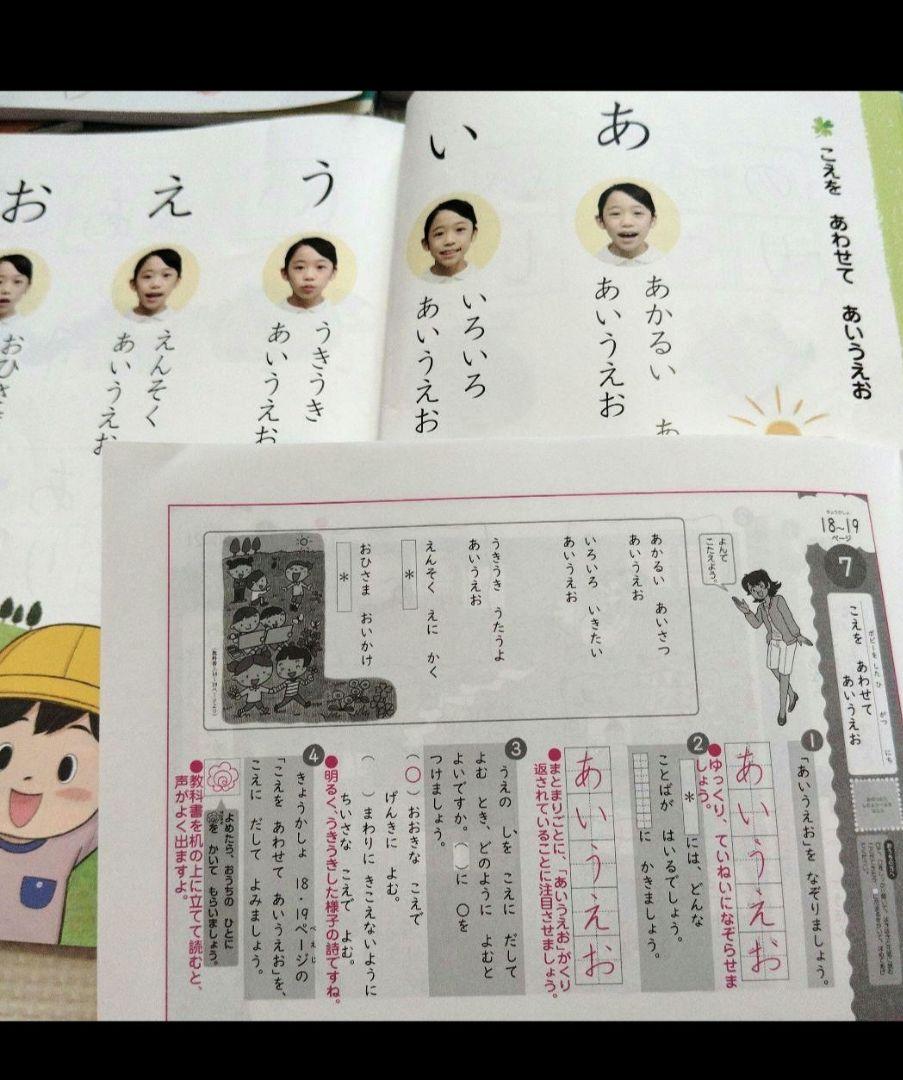 こえを あわせて あいうえお
あ
あかるい あ
あいうえお
い
いろいろ
あいうえお
う
うきうき
あいうえお
え
えんそく
あいうえお
お
おひさ
18~19
ページ
7
こえを あわせて
あいうえお
よんで
こたえよう。
あかるい あいさつ
あいうえお
いろいろ いきたい
あいうえお
うきうき うたうよ
あいうえお
えんそく えに かく
*
おひさま おいかけ
*
1
「あいうえお」を なぞりましょう。
あいうえお
●ゆっくり、ていねいになぞらせま
しょう。
2
*には、どんな
ことばが はいるでしょう。
に かきましょう。
あいうえお
●まとまりごとに、「あいうえお」がくり
返されていることに注目させましょう。
3
うえの しを こえに だして
よむ とき、どのように よむと
よいですか。( )に ○を
つけましょう。
(○)おおきな こえで
げんきに よむ。
( )まわりに きこえないように
ちいさな こえで よむ。
●明るく、うきうきした様子の詩ですね。
4
きょうかしょ 18・19ページの
「こえを あわせて あいうえお」を、
こえに だして よみましょう。
よめたら、おうちの ひとに
を かいて もらいましょう。
●教科書を机の上に立てて読むと、
声がよく出ますよ。